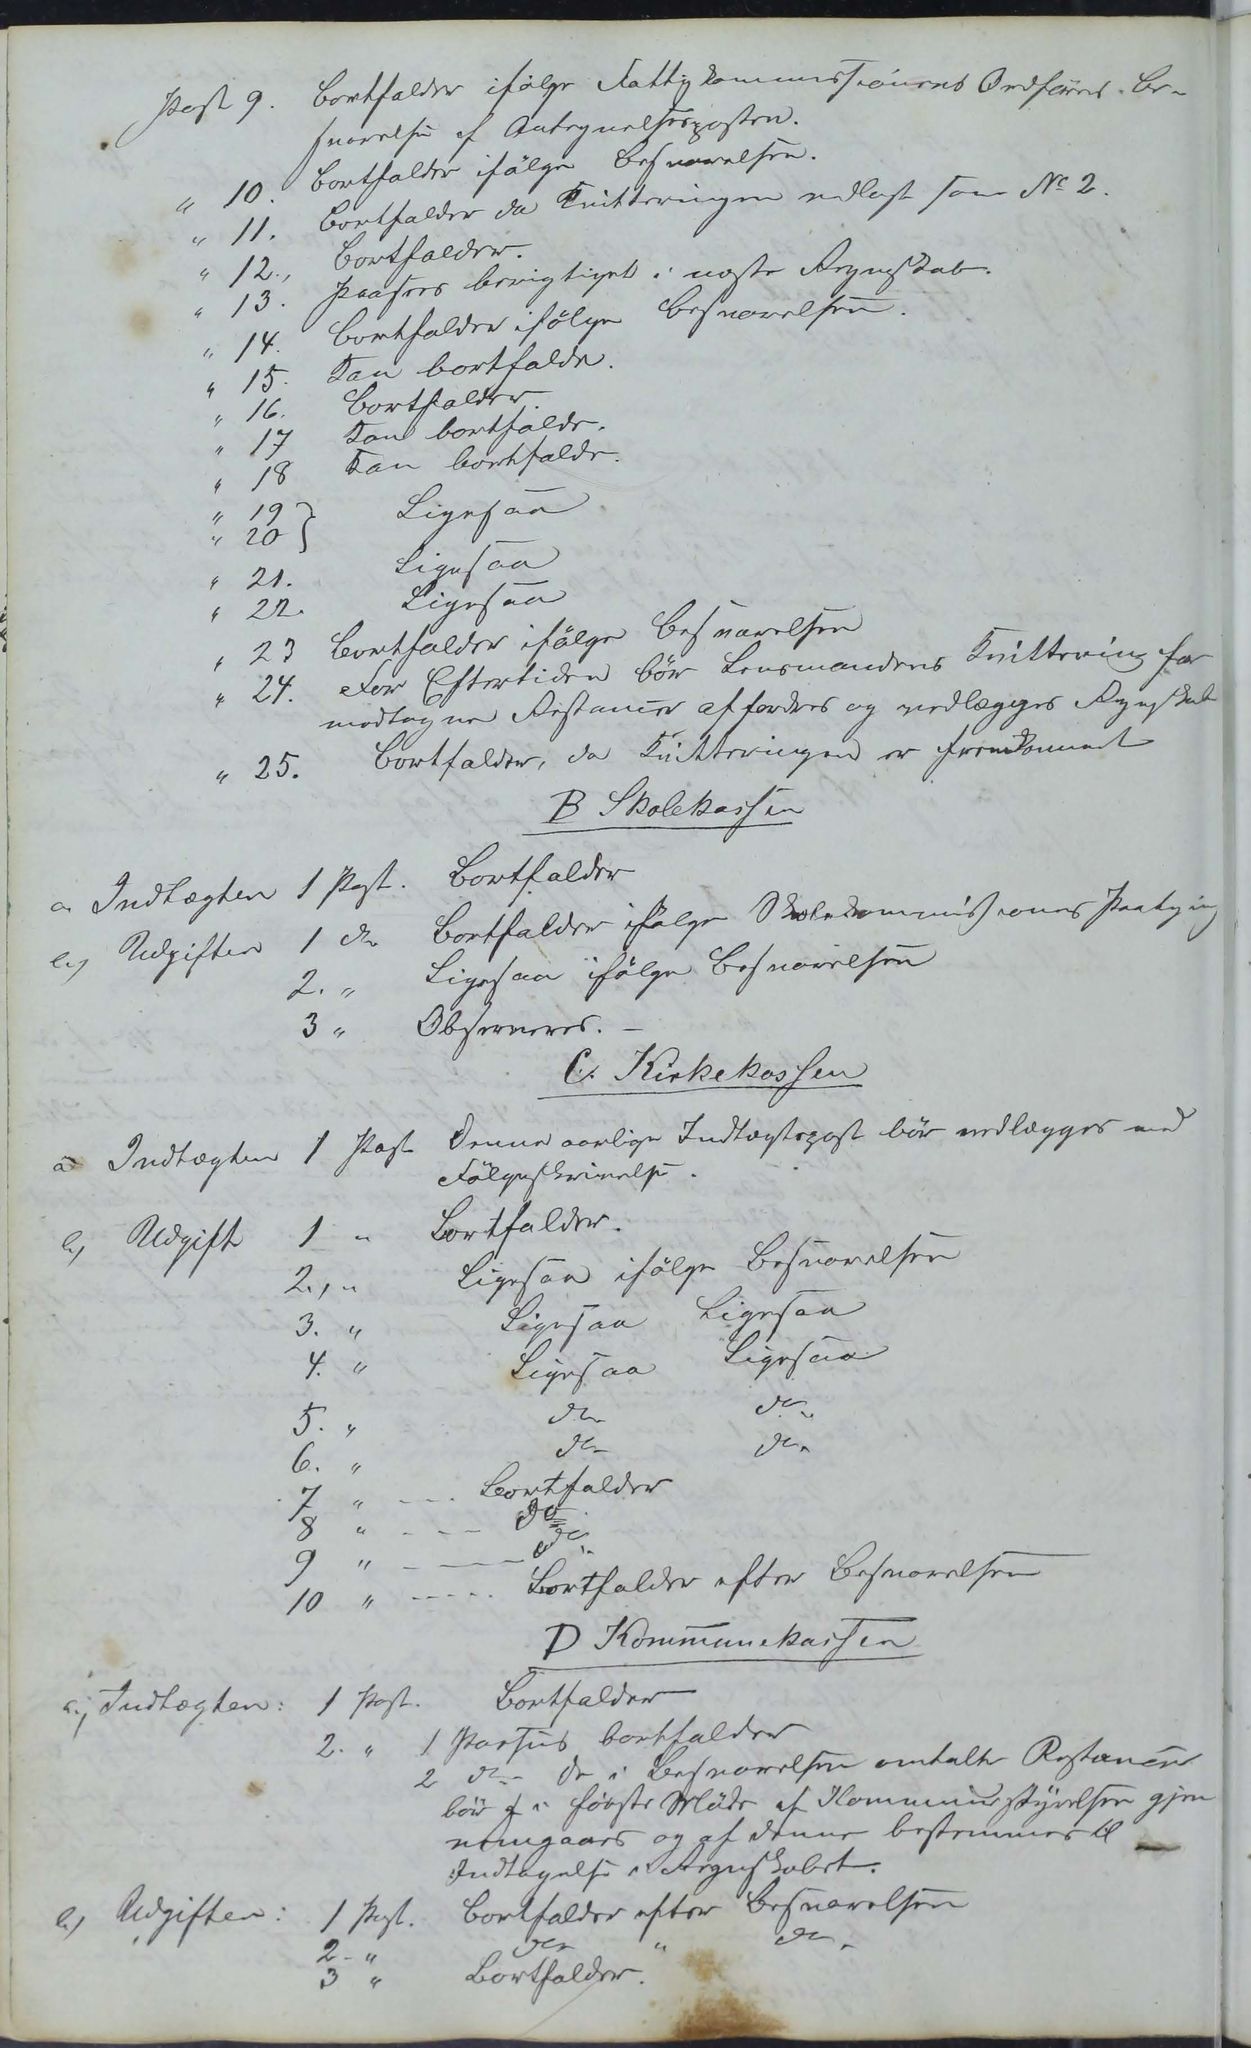 Post 9. Bortfalder ifölge Fattigkommissionens Ordförers Be-
svarelse af Antegnelsesposten.
" 10. Bortfalder ifölge Besvarelsen.
" 11. Bortfalder da Kvitteringen vedlagt som No 2.
" 12., Bortfalder.
" 13. Paasees berigtiget i næste Regnskab.
" 14. Bortfalder ifölge Besvarelsen.
" 15. Kan bortfalde.
" 16. Bortfalder.
" 17 Kan bortfalde.
" 18 Kan bortfalde.
" 19 } Ligesaa
" 20 }
" 21. Ligesaa
" 22. Ligesaa
" 23 Bortfalder ifölge Besvarelsen
" 24. For Eftertiden bör Lensmandens Kvittering for
modtagne Restancer affordres og vedlægges Regnskab
" 25. Bortfalder, da Kvitteringen er fremkommet
B Skolekassen
a Indtægten 1 Post. Bortfalder
b, Udgiften 1 do Bortfalder ifölge Skolekommissionens Paategning
2. " Ligesaa ifölge Besvarelsen
3 " Observeres. —
C. Kirkekassen
a Indtægten 1 Post Denne aarlige Indtægtspost bör vedlægges med
Fölgeskrivelse.
b, Udgift 1 " Bortfalder.
2., " Ligesaa ifölge Besvarelsen
3. " Ligesaa Ligesaa
4. " Ligesaa Ligesaa
5. " do do
6. " do do
7 " ---- Bortfalder
8 " ---- do
9 " ---- do
10 " ----- Bortfalder efter Besvarelsen
D Kommunekassen
a, Indtægten: 1 Post. Bortfalder
2. " 1 Passus bortfalder
2 do De i Besvarelsen omtalte Restancer
bör i förste Möde af Kommunestyrelsen gjen
nemgaaes og af denne bestemmes til
Indtagelse i Regnskabet.
b, Udgiften: 1 Post. Bortfalder efter Besvarelsen
2 - " do " do
3 " Bortfalder.